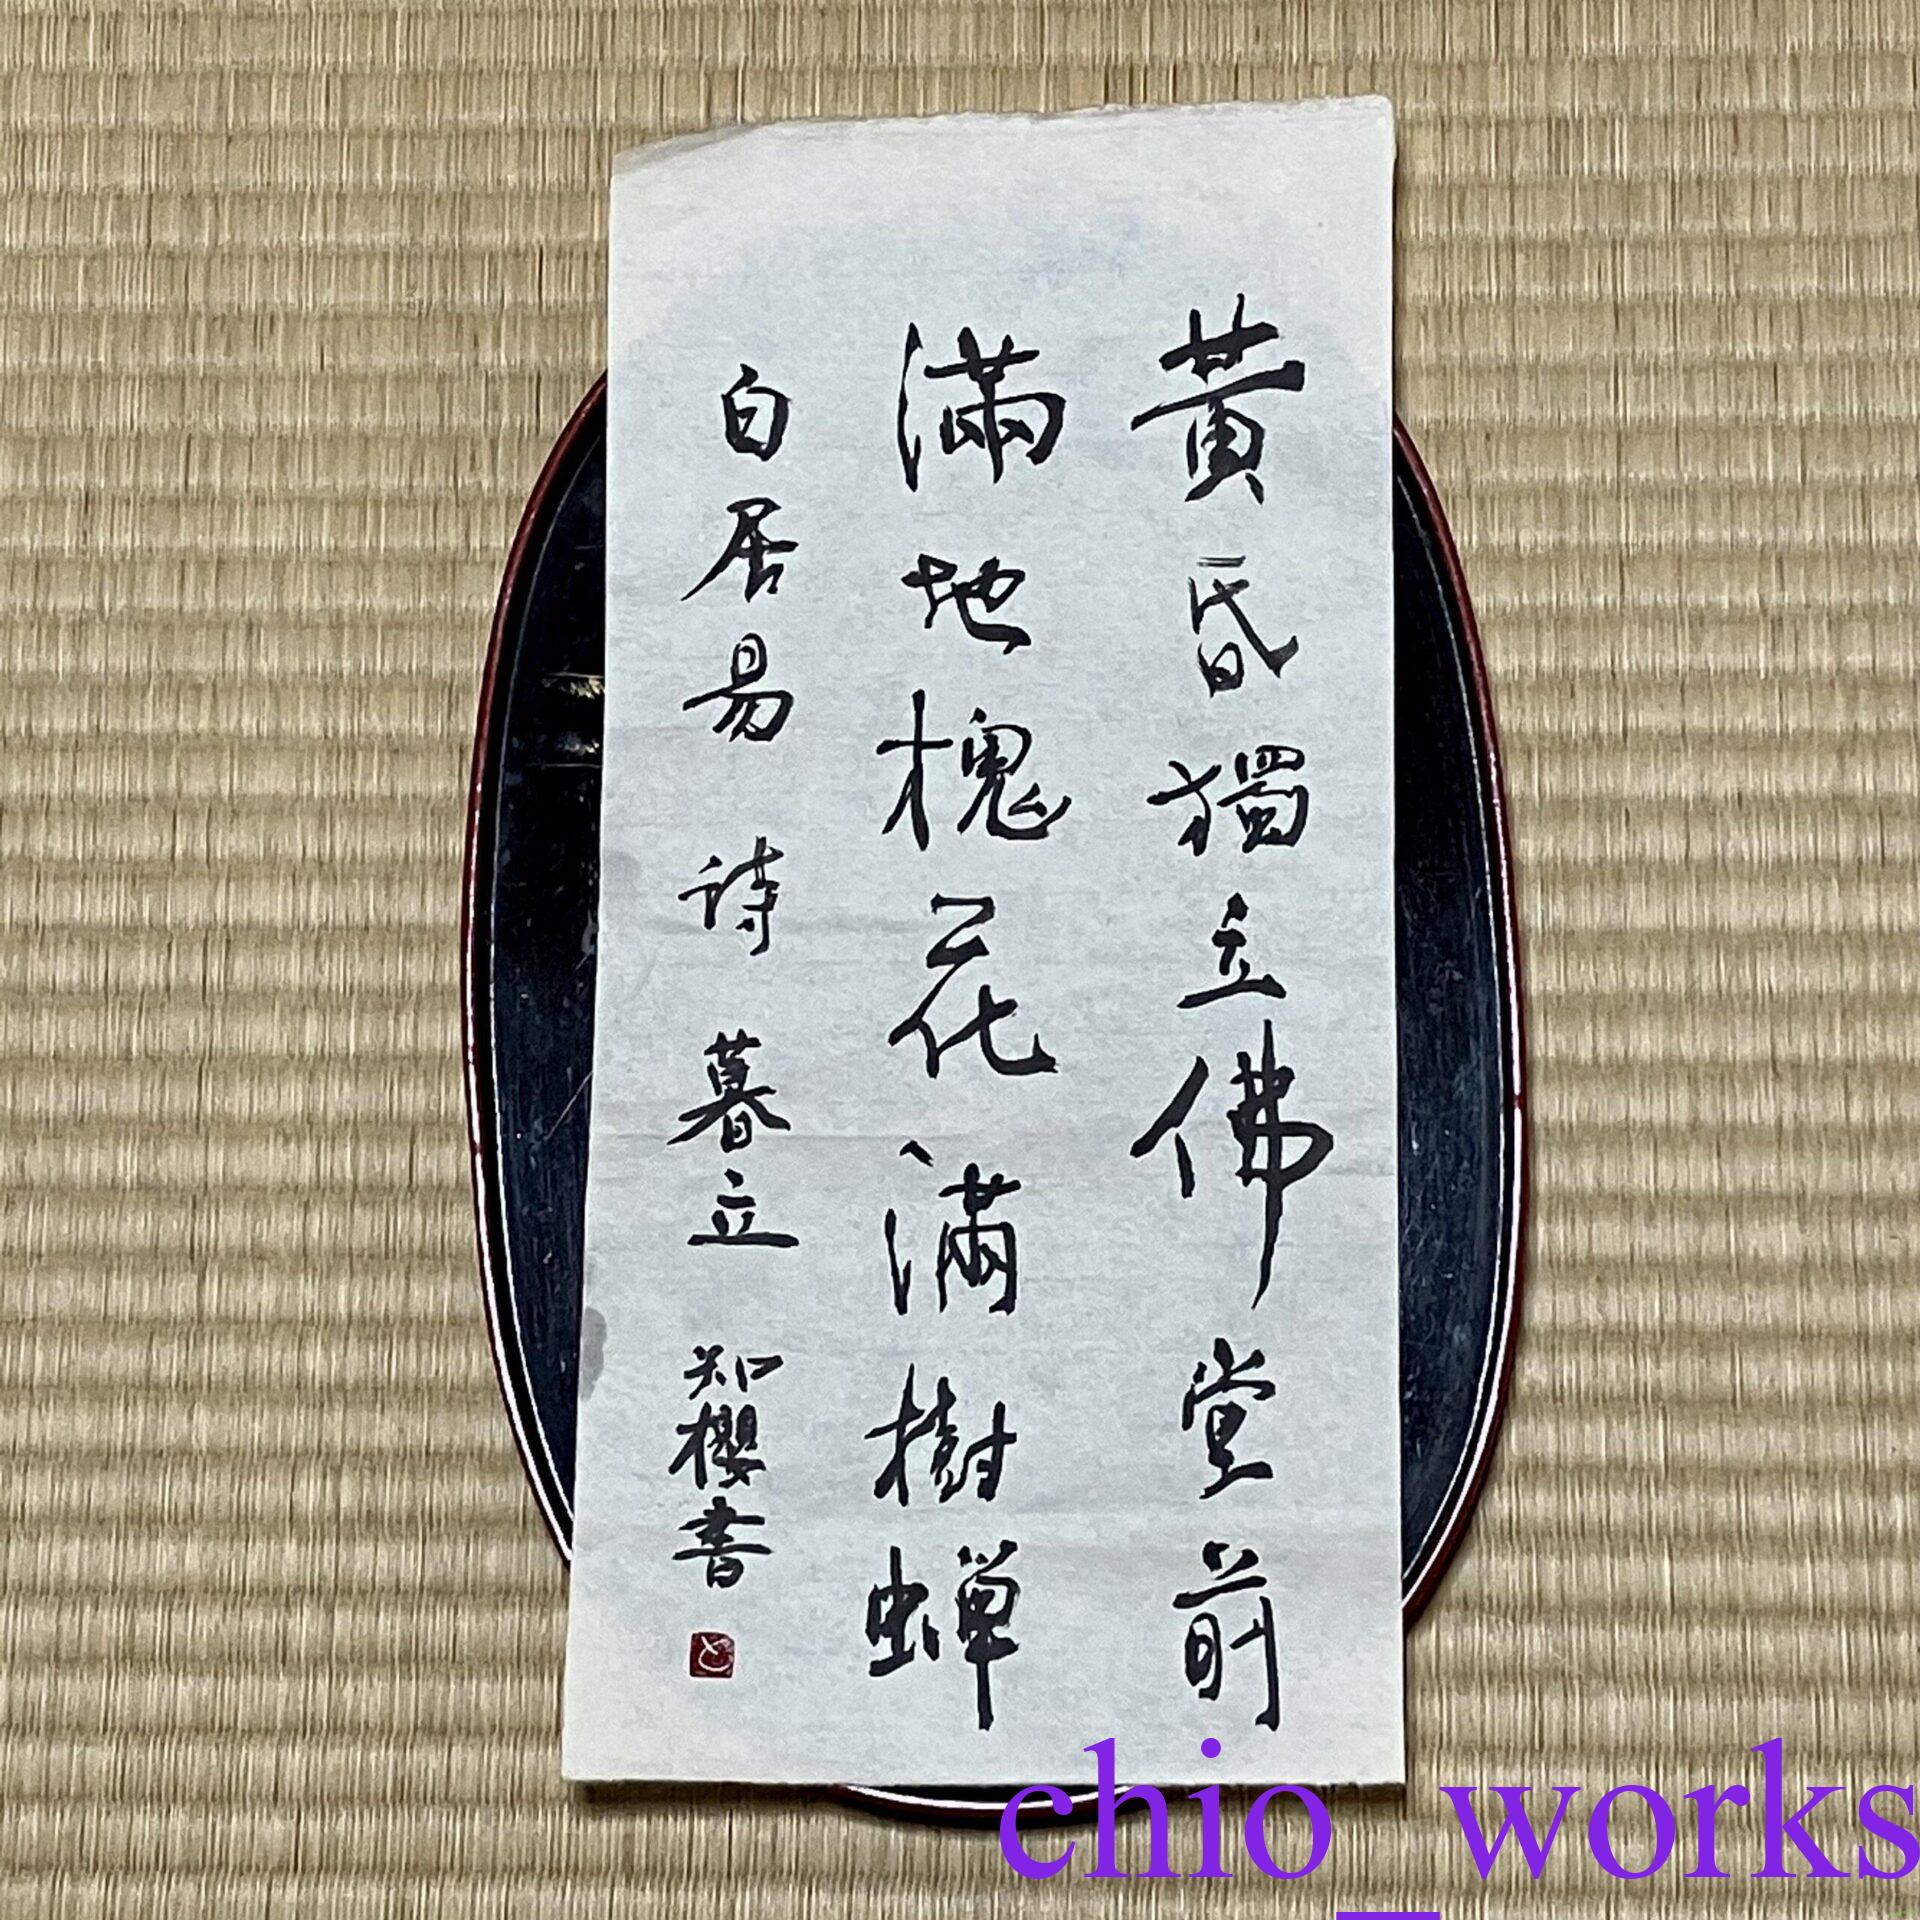 黃昏獨立佛堂前
滿地槐花滿樹蝉
白居易 詩 暮立 知櫻書
chio_works